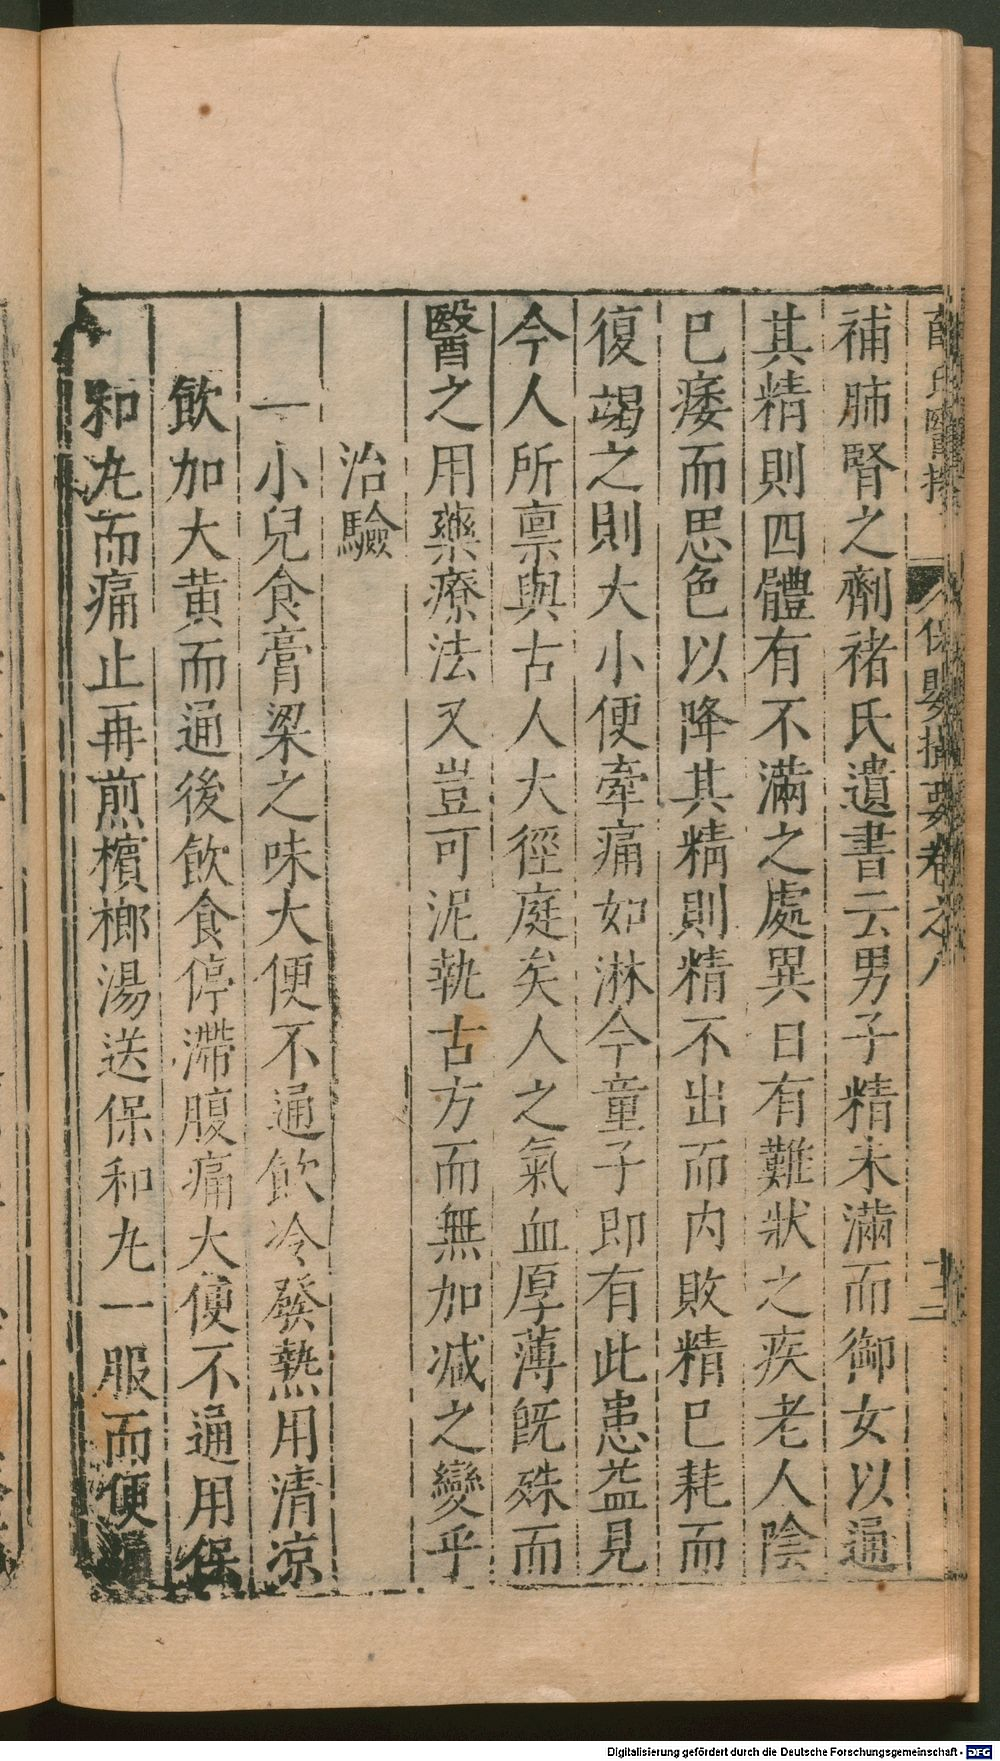 薛氏醫按 保嬰撮要卷之八 十三
補肺腎之劑褚氏遺書云男子精未滿而御女以通
其精則四體有不滿之處異日有難狀之疾老人陰
已痿而思色以降其精則精不出而內敗精已耗而
復竭之則大小便牽痛如淋今童子即有此患益見
今人所禀與古人大徑庭矣人之氣血厚薄旣殊而
醫之用藥療法又豈可泥執古方而無加减之變乎
治驗
一小兒食膏梁之味大便不通飲冷發熱用清凉
飲加大黄而通後飲食停滯腹痛大便不通用保
和九而痛止再煎檳榔湯送保和九一服而便
Digitalisierung gefördert durch die Deutsche Forschungsgemeinschaft - DFG